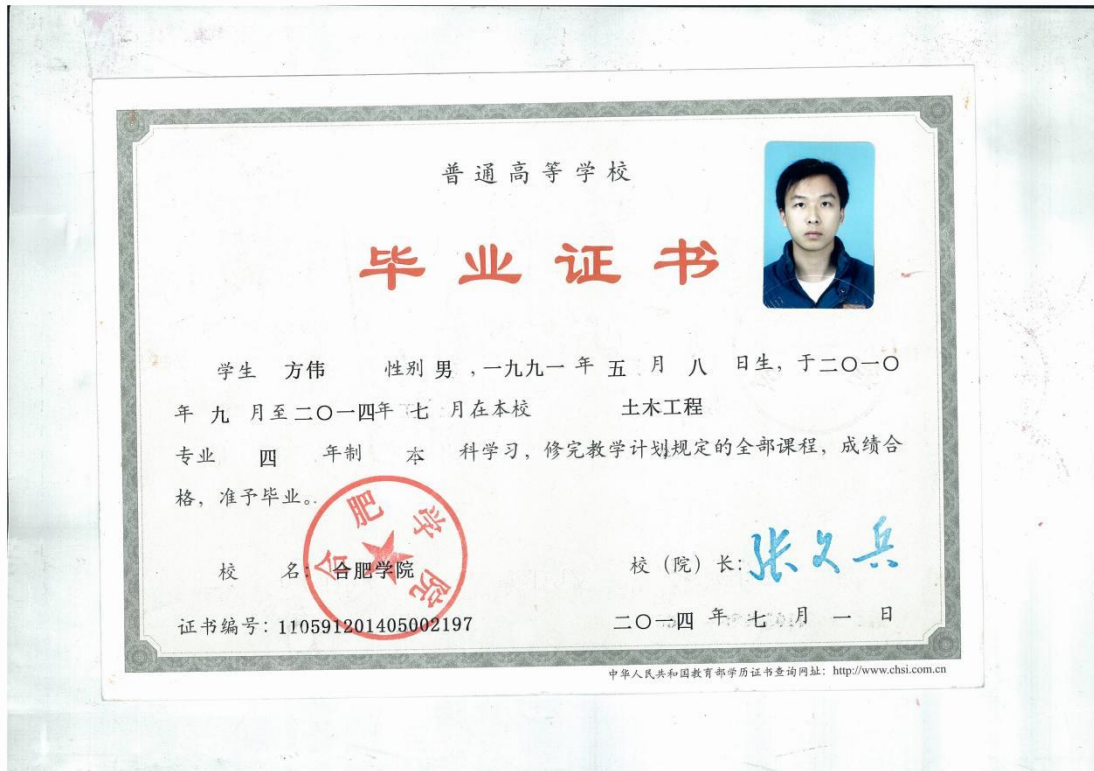 普通高等学校
毕业证书
学生 方伟 性别 男 ，一九九一 年 五 月 八 日生，于二〇一〇
年 九 月至二〇一四年 七 月在本校 土木工程
专业 四 年制 本 科学习，修完教学计划规定的全部课程，成绩合
格，准予毕业。
校 名：合肥学院
合肥学院
校（院）长：张文兵
证书编号：110591201405002197
二〇一四 年 七 月 一 日
中华人民共和国教育部学历证书查询网址：http://www.chsi.com.cn